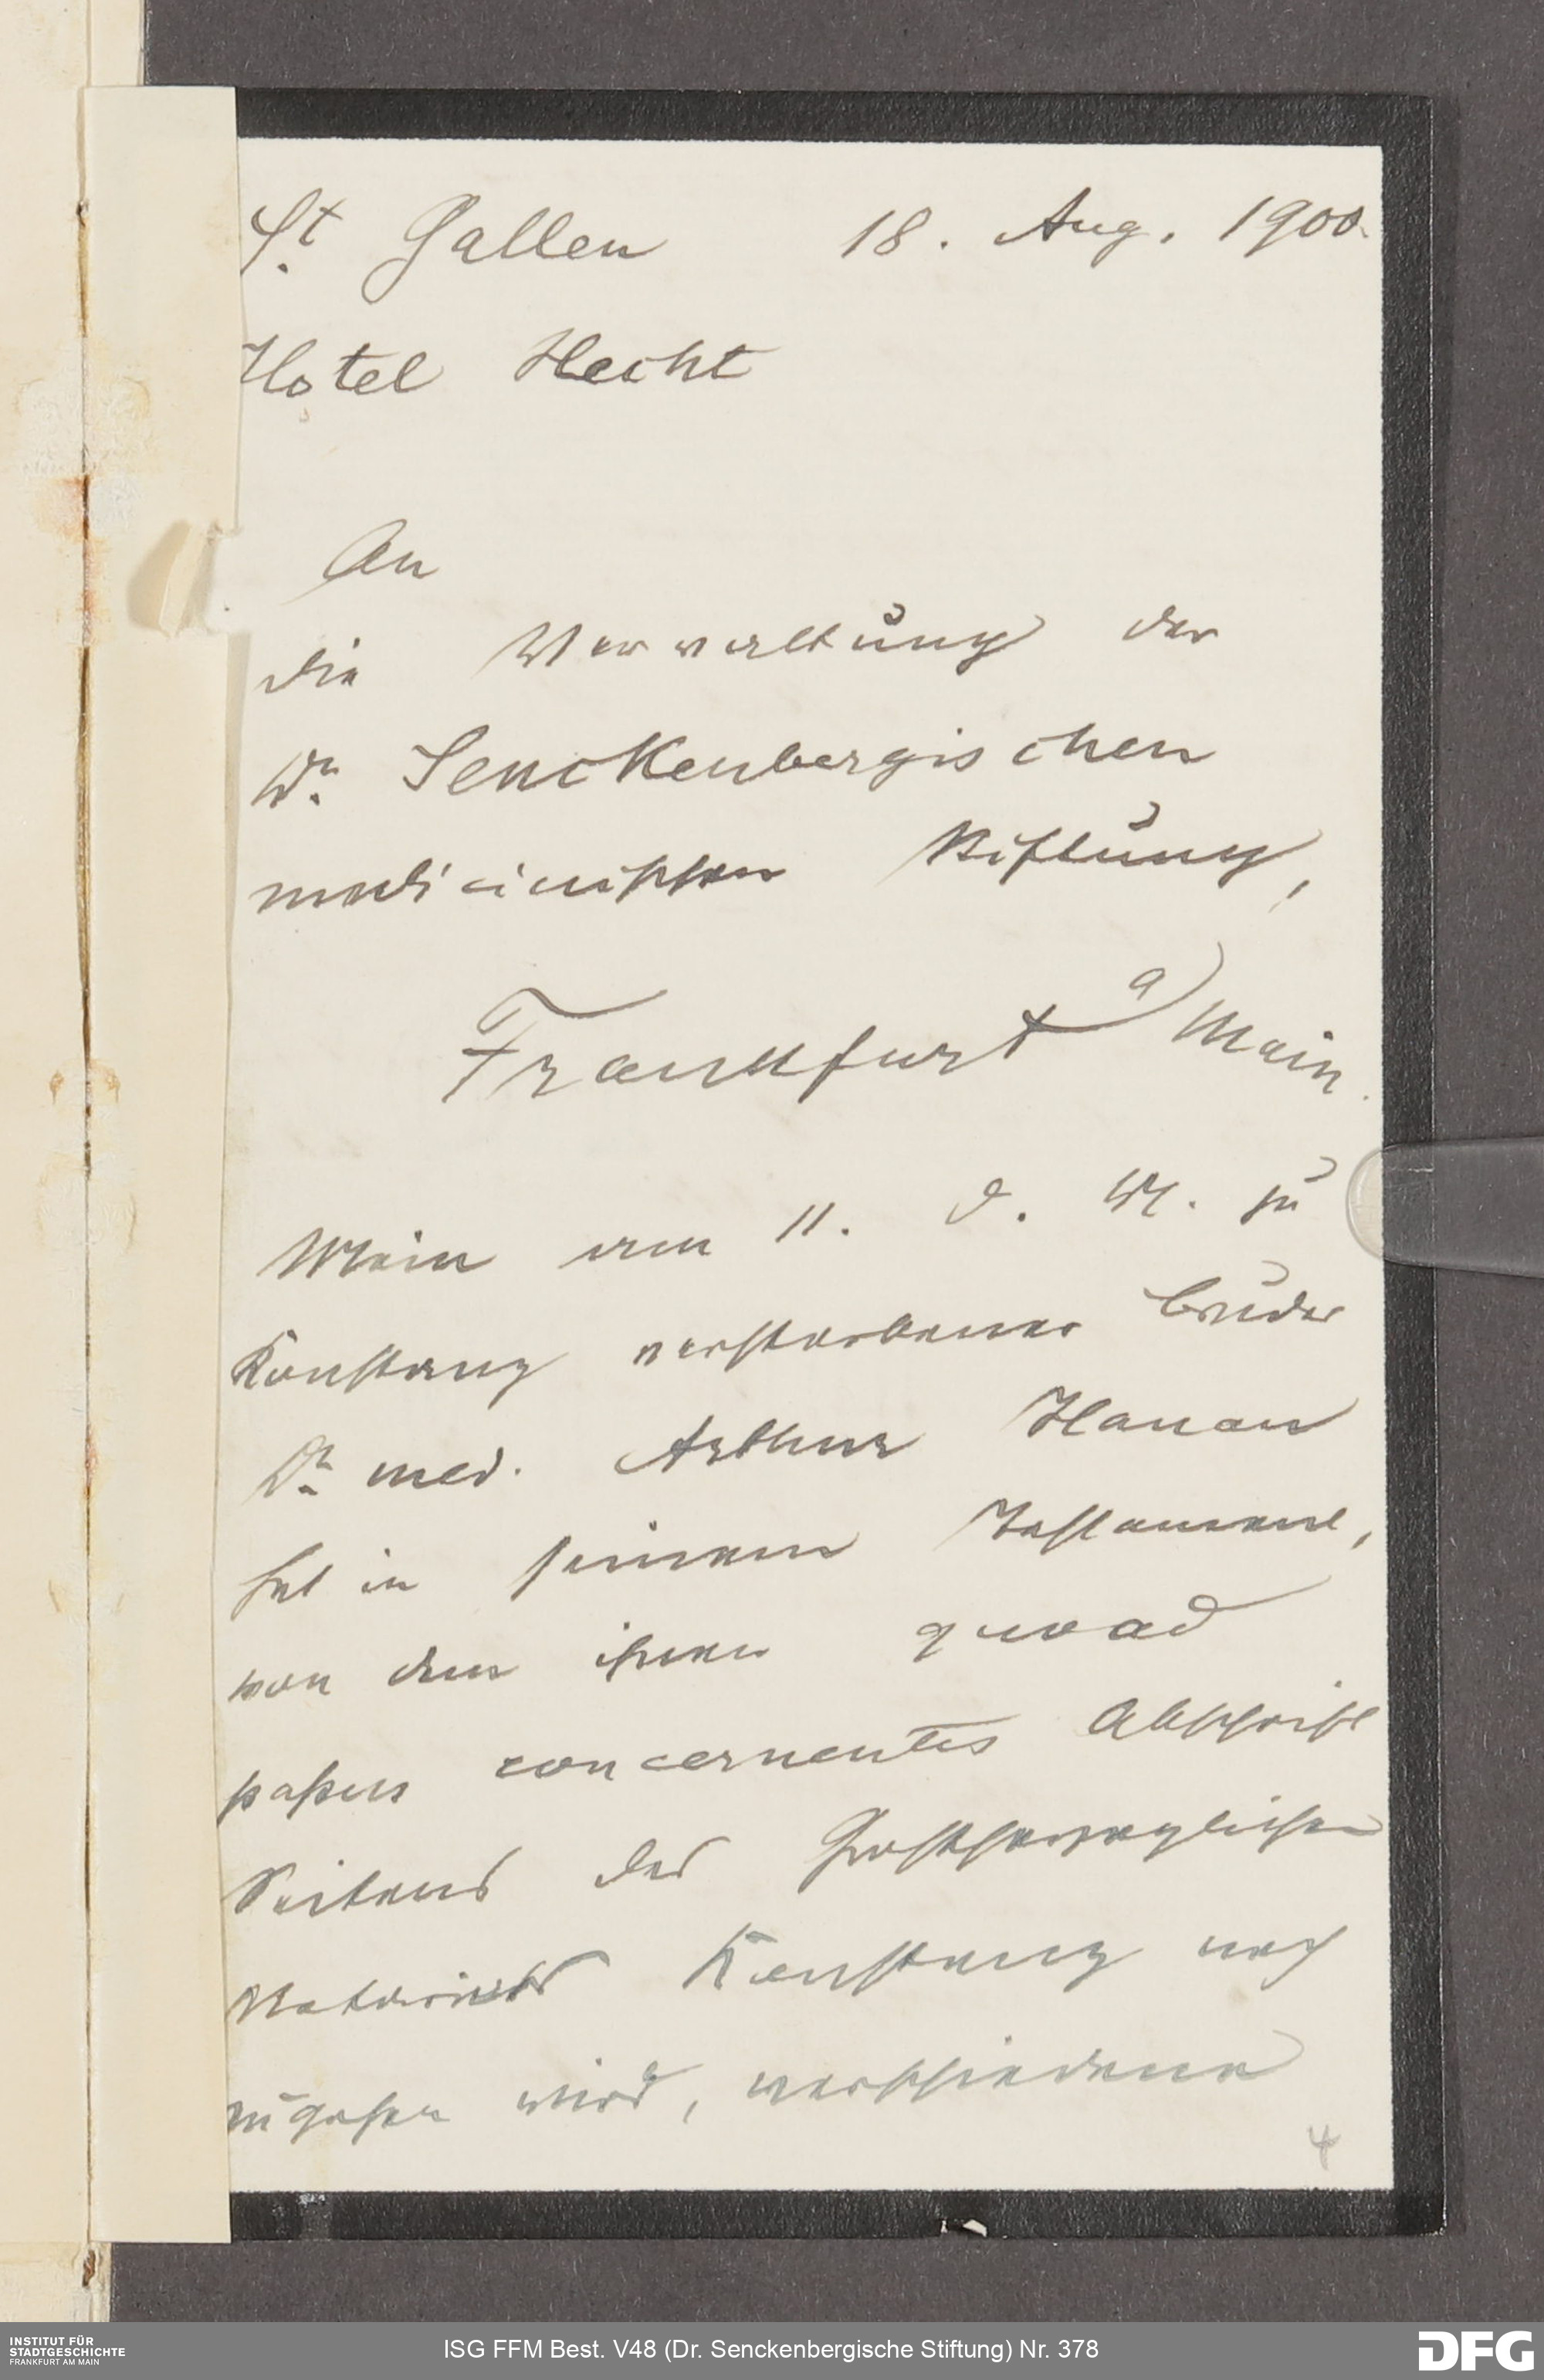 St. Gallen 18. Aug. 1900.
Hotel Hecht
An
die Verwaltung der
Dr. Senckenbergischen
medicinischen Stiftung,
Frankfurt a/Main.
Mein am 11. d. M. zu
Konstanz verstorbener Bruder
Dr. med. Arthur Hanau
hat in seinem Testamente,
von dem ihnen quoad
passus concernentes Abschrift
Seitens des Großherzoglichen
Notariats Konstanz noch
zugehen wird, verschiedene
4
INSTITUT FÜR
STADTGESCHICHTE
FRANKFURT AM MAIN
ISG FFM Best. V48 (Dr. Senckenbergische Stiftung) Nr. 378
DFG